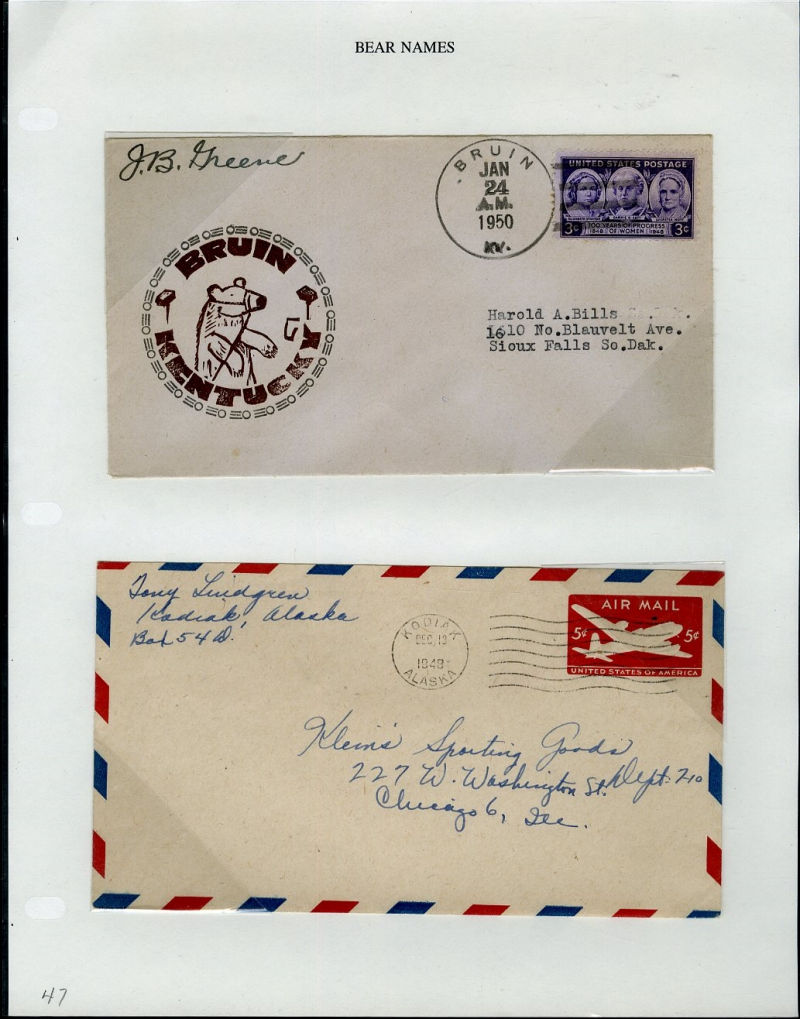 BEAR NAMES
J.B. Greene
BRUIN
JAN
24
A.M.
1950
KY.
UNITED STATES POSTAGE
3¢ 100 YEARS OF PROGRESS 3¢
1848 OF WOMEN 1948
BRUIN
KENTUCKY
Harold A.Bills
1610 No.Blauvelt Ave.
Sioux Falls So.Dak.
Tony Lindgren
Kodiak, Alaska
Box 54 D.
KODIAK
DEC 13
1948
ALASKA
AIR MAIL
5¢ 5¢
UNITED STATES OF AMERICA
Klein's Sporting Goods
227 W. Washington St. Dept. 210
Chicago 6, Ill.
47